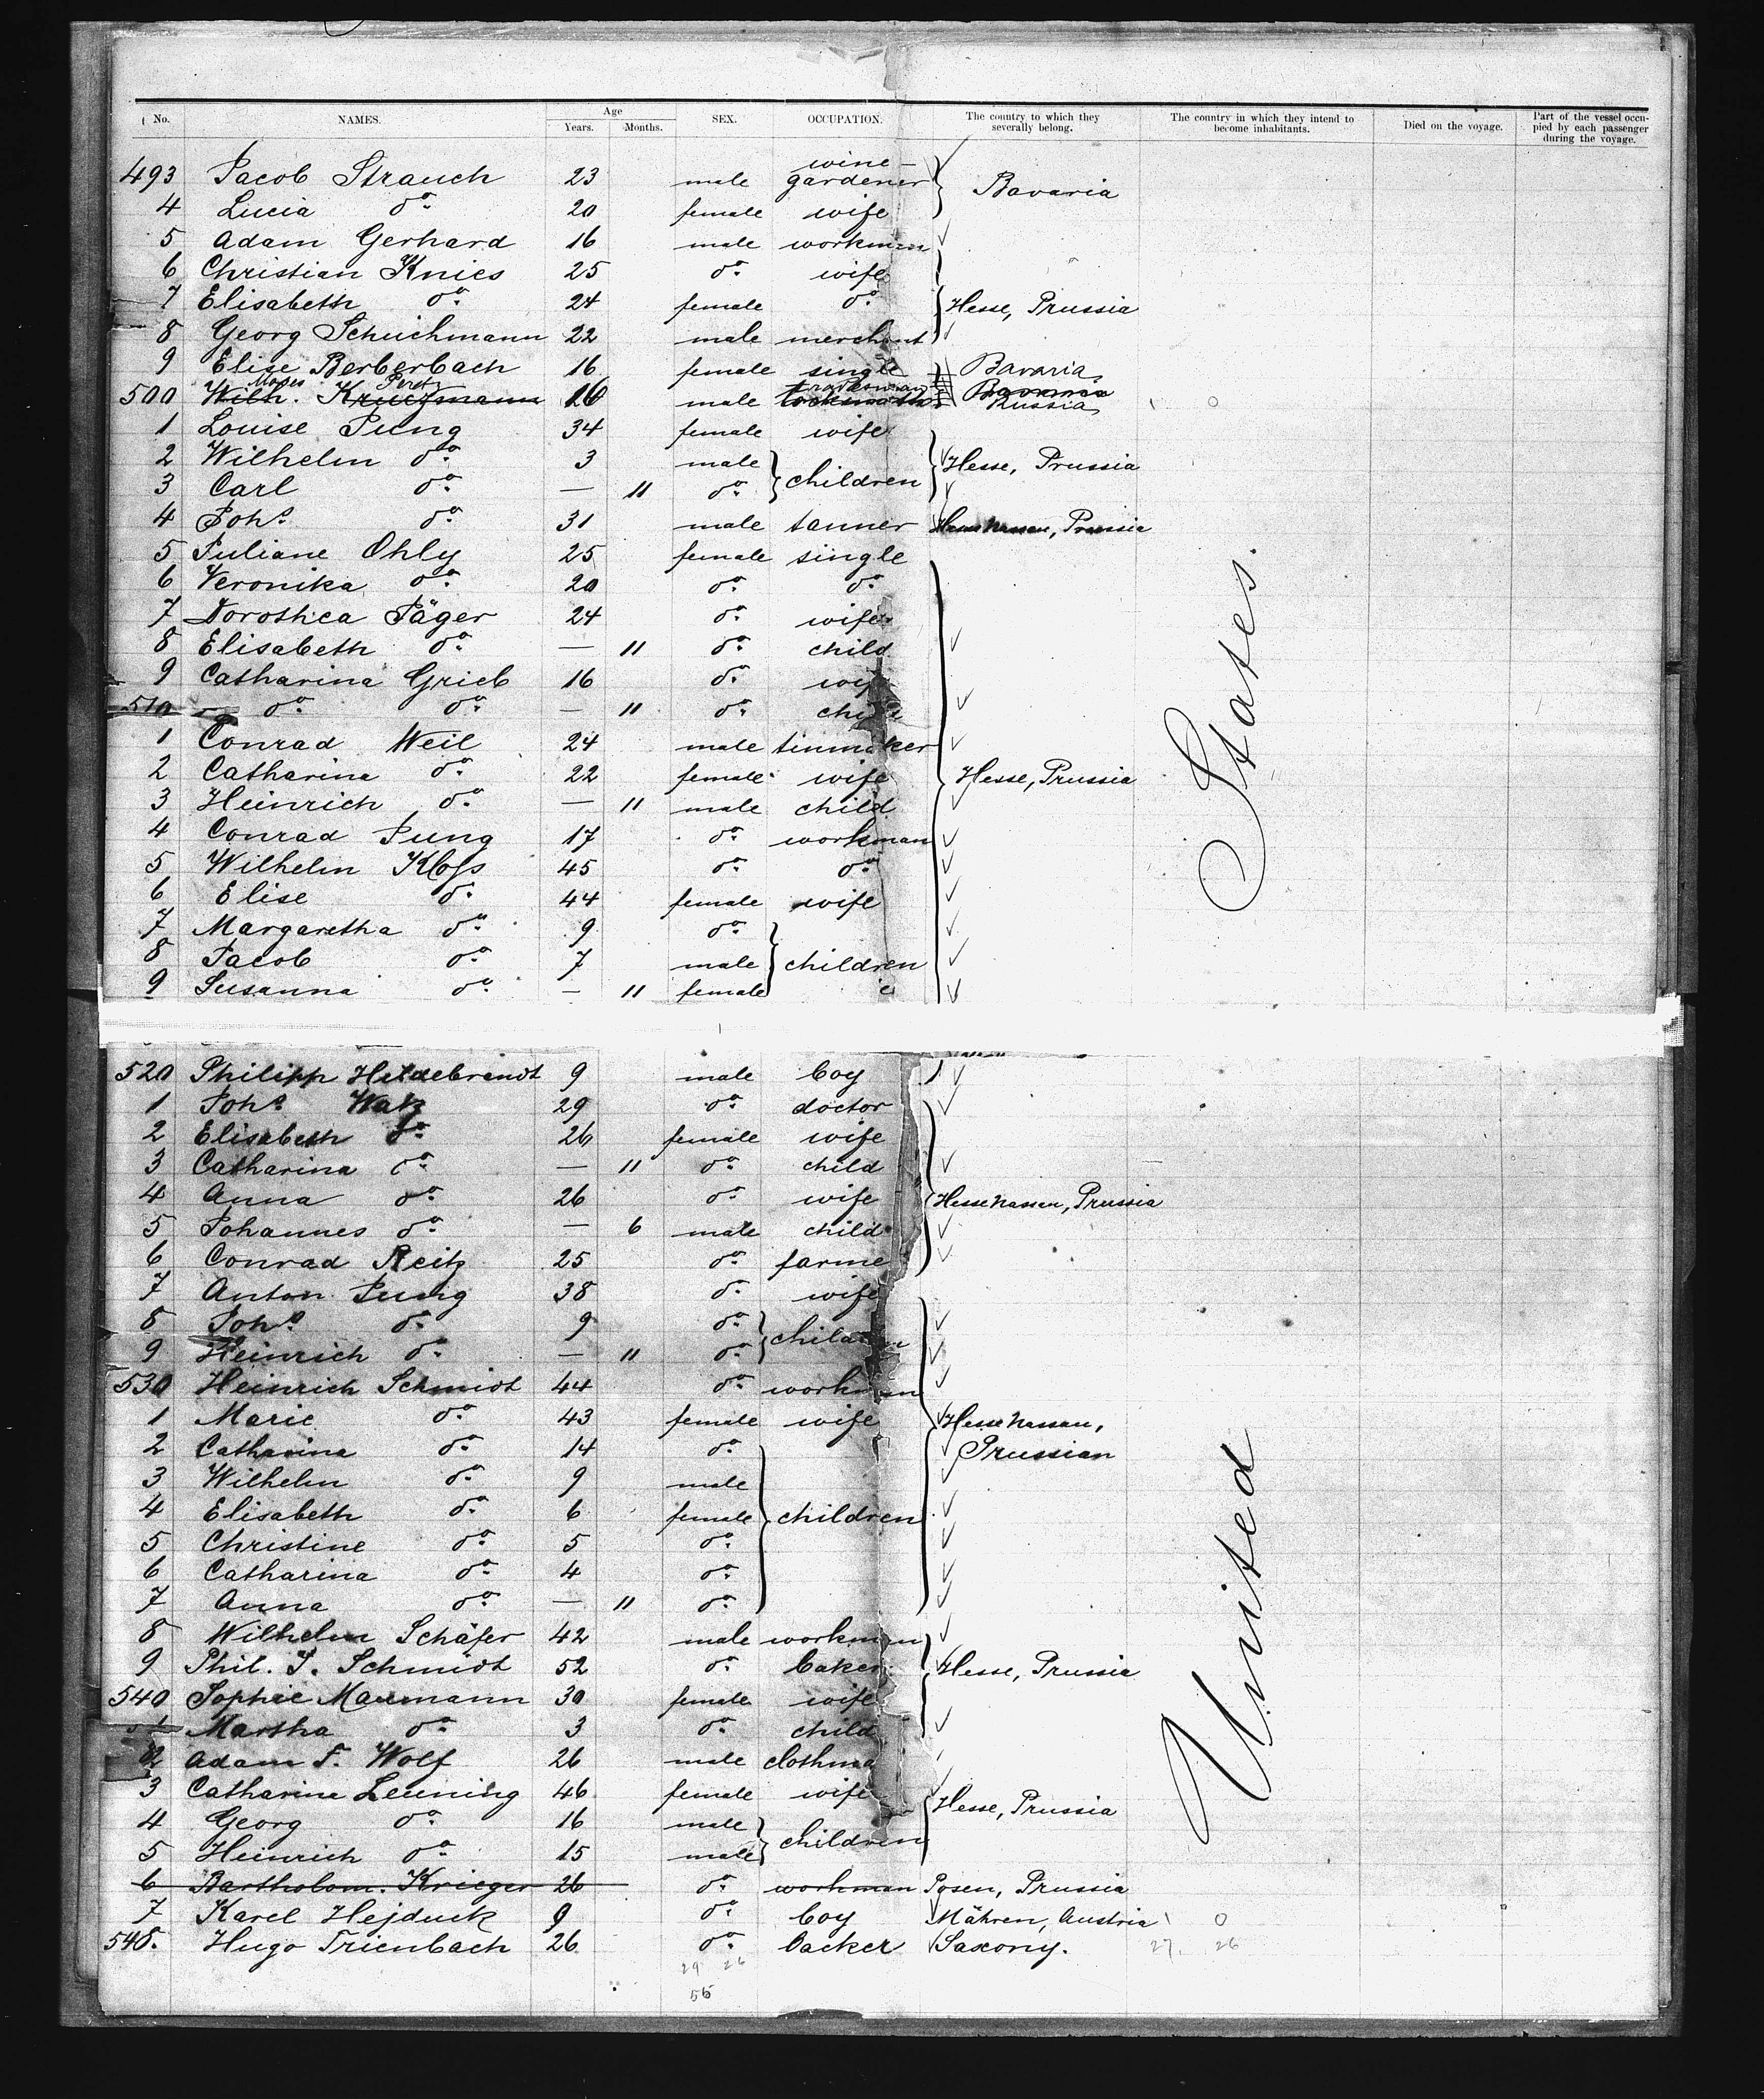 No. NAMES. Age Years. Months. SEX. OCCUPATION. The country to which they severally belong. The country in which they intend to become inhabitants. Died on the voyage. Part of the vessel occupied by each passenger during the voyage.
493 Jacob Strauch 23 male wine-gardener Bavaria
4 Lucia do. 20 female wife
5 Adam Gerhard 16 male workman
6 Christian Knies 25 do. wife
7 Elisabeth do. 24 female do. Hesse, Prussia
8 Georg Schuchmann 22 male merchant
9 Elise Berberbach 16 female single Bavaria
500 Wilh. Moses Peretz 26 male Bavaria Russia
1 Louise Jung 34 female wife
2 Wilhelm do. 3 male children Hesse, Prussia
3 Carl do. — 11 do.
4 Johs. do. 31 male tanner Prussia
5 Juliane Ohly 25 female single
6 Veronika do. 20 do. do.
7 Dorothea Jäger 24 do. wife
8 Elisabeth do. — 11 do. child
9 Catharina Grieb 16 do. wife
510 do. do. — 11 do. child
1 Conrad Weil 24 male tinmaker
2 Catharina do. 22 female wife Hesse, Prussia
3 Heinrich do. — 11 male child
4 Conrad Jung 17 do. workman
5 Wilhelm Kloss 45 do. do.
6 Elise do. 44 female wife
7 Margaretha do. 9 do.
8 Jacob do. 7 male children
9 Susanna do. — 11 female
520 Philipp Hildebrandt 9 male boy
1 Johs. Watz 29 do. doctor
2 Elisabeth do. 26 female wife
3 Catharina do. — 11 do. child
4 Anna do. 26 do. wife Hessenassau, Prussia
5 Johannes do. — 6 male child
6 Conrad Reitz 25 do. farme
7 Anton Jung 38 do. wife
8 Johs. do. 9 do. children
9 Heinrich do. — 11 do.
530 Heinrich Schmidt 44 do. workman
1 Marie do. 43 female wife Hessenassau,
2 Catharina do. 14 do. Prussian
3 Wilhelm do. 9 male
4 Elisabeth do. 6 female children
5 Christine do. 5 do.
6 Catharina do. 4 do.
7 Anna do. — 11 do.
8 Wilhelm Schäfer 42 male workman
9 Phil. J. Schmidt 52 do. baker Hesse, Prussia
540 Sophie Maxmann 30 female wife
Martha do. 3 do. child
2 Adam F. Wolf 26 male clothma
3 Catharina Leuning 46 female wife Hesse, Prussia
4 Georg do. 16 male children
5 Heinrich do. 15 male
6 Bartholom. Krieger 26 do. workman Posen, Prussia
7 Karel Hejduck 9 do. boy Mähren, Austria
548. Hugo Trienbach 26 do. backer Saxony. 27. 26
29 26
55
United States.